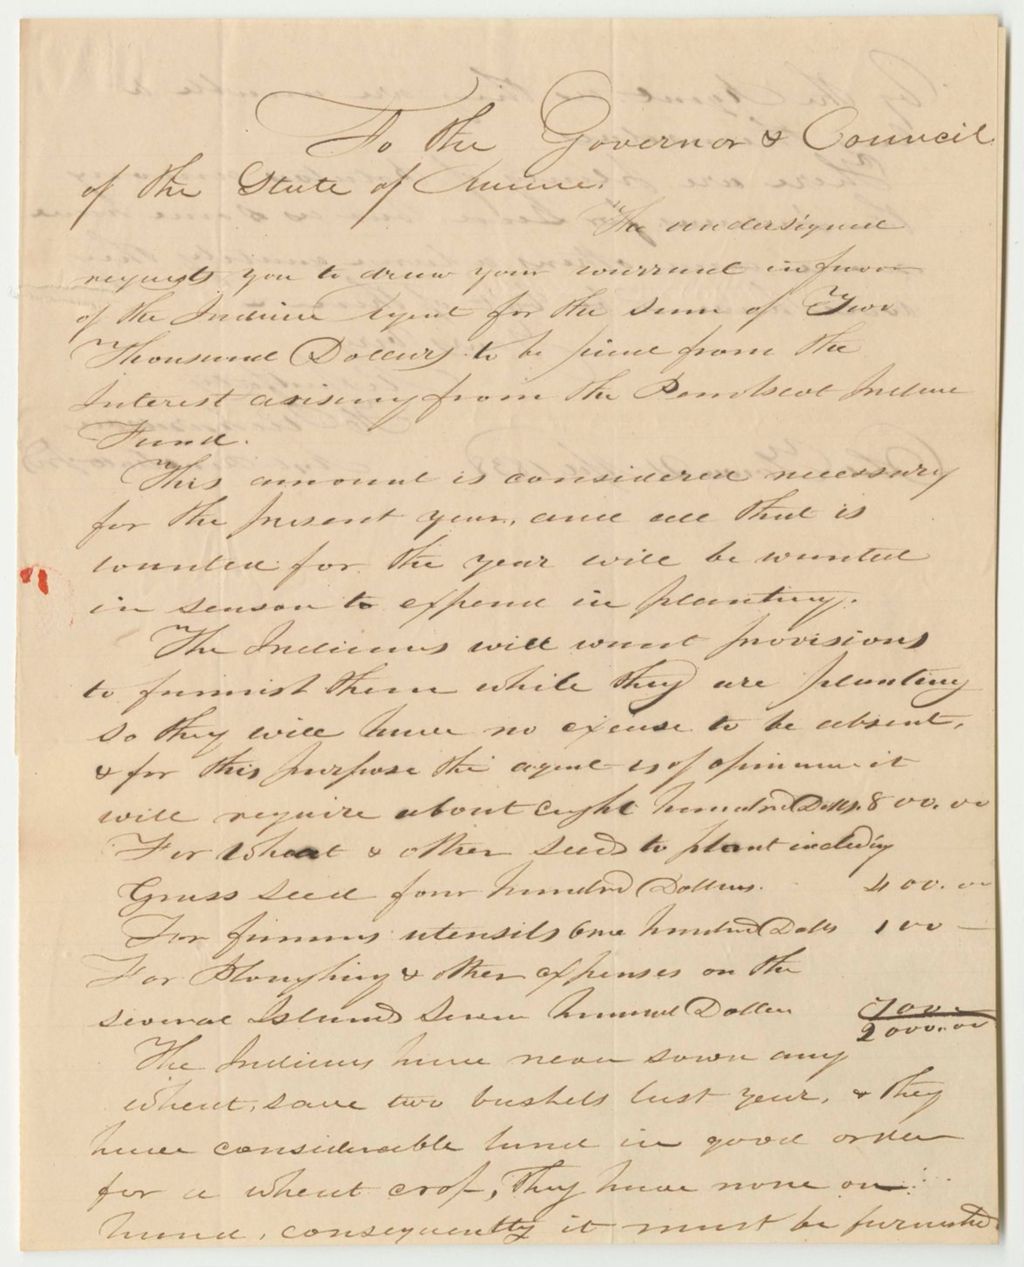 To the Governor & Council
of the State of Maine.
The undersigned
requests you to draw your warrant in favor
of the Indian Agent for the sum of Two
Thousand Dollars to be paid from the
Interest arising from the Penobscot Indian
Fund.
This amount is considered necessary
for the present year, and all that is
wanted for the year will be wanted
in season to expend in planting.
The Indians will want provisions
to furnish them while they are planting
so they will have no excuse to be absent,
& for this purpose the agent is of opinion it
will require about eight hundred Dolls. 800.00
For Wheat & other seeds to plant including
Grass seed four hundred Dollars. 400.00
For farming utensils one hundred Dolls 100 —
For Ploughing & other expenses on the
several Islands seven hundred Dollars 700.
2000.00
The Indians have never sown any
wheat, save two bushels last year, & they
have considerable land in good order
for a wheat crop, They have none on
hand, consequently it must be furnished